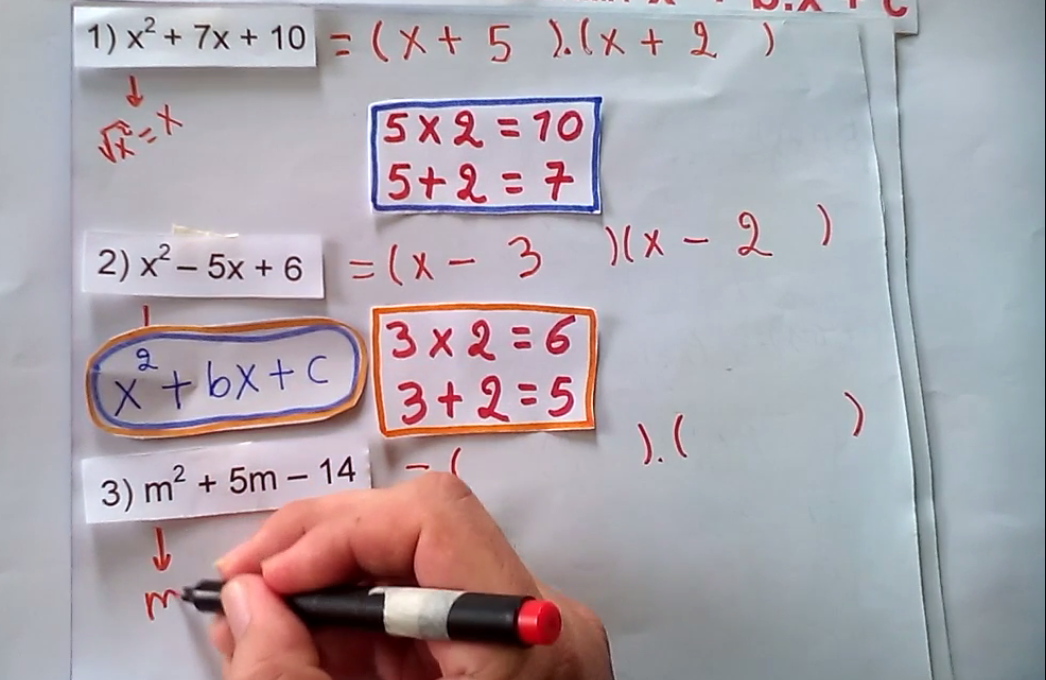 1) x² + 7x + 10 = (x + 5 ).(x + 2 )
√x² = x
5 x 2 = 10
5 + 2 = 7
2) x² – 5x + 6 = (x – 3 )(x – 2 )
x² + bx + c
3 x 2 = 6
3 + 2 = 5
3) m² + 5m – 14 = ( ).( )
m